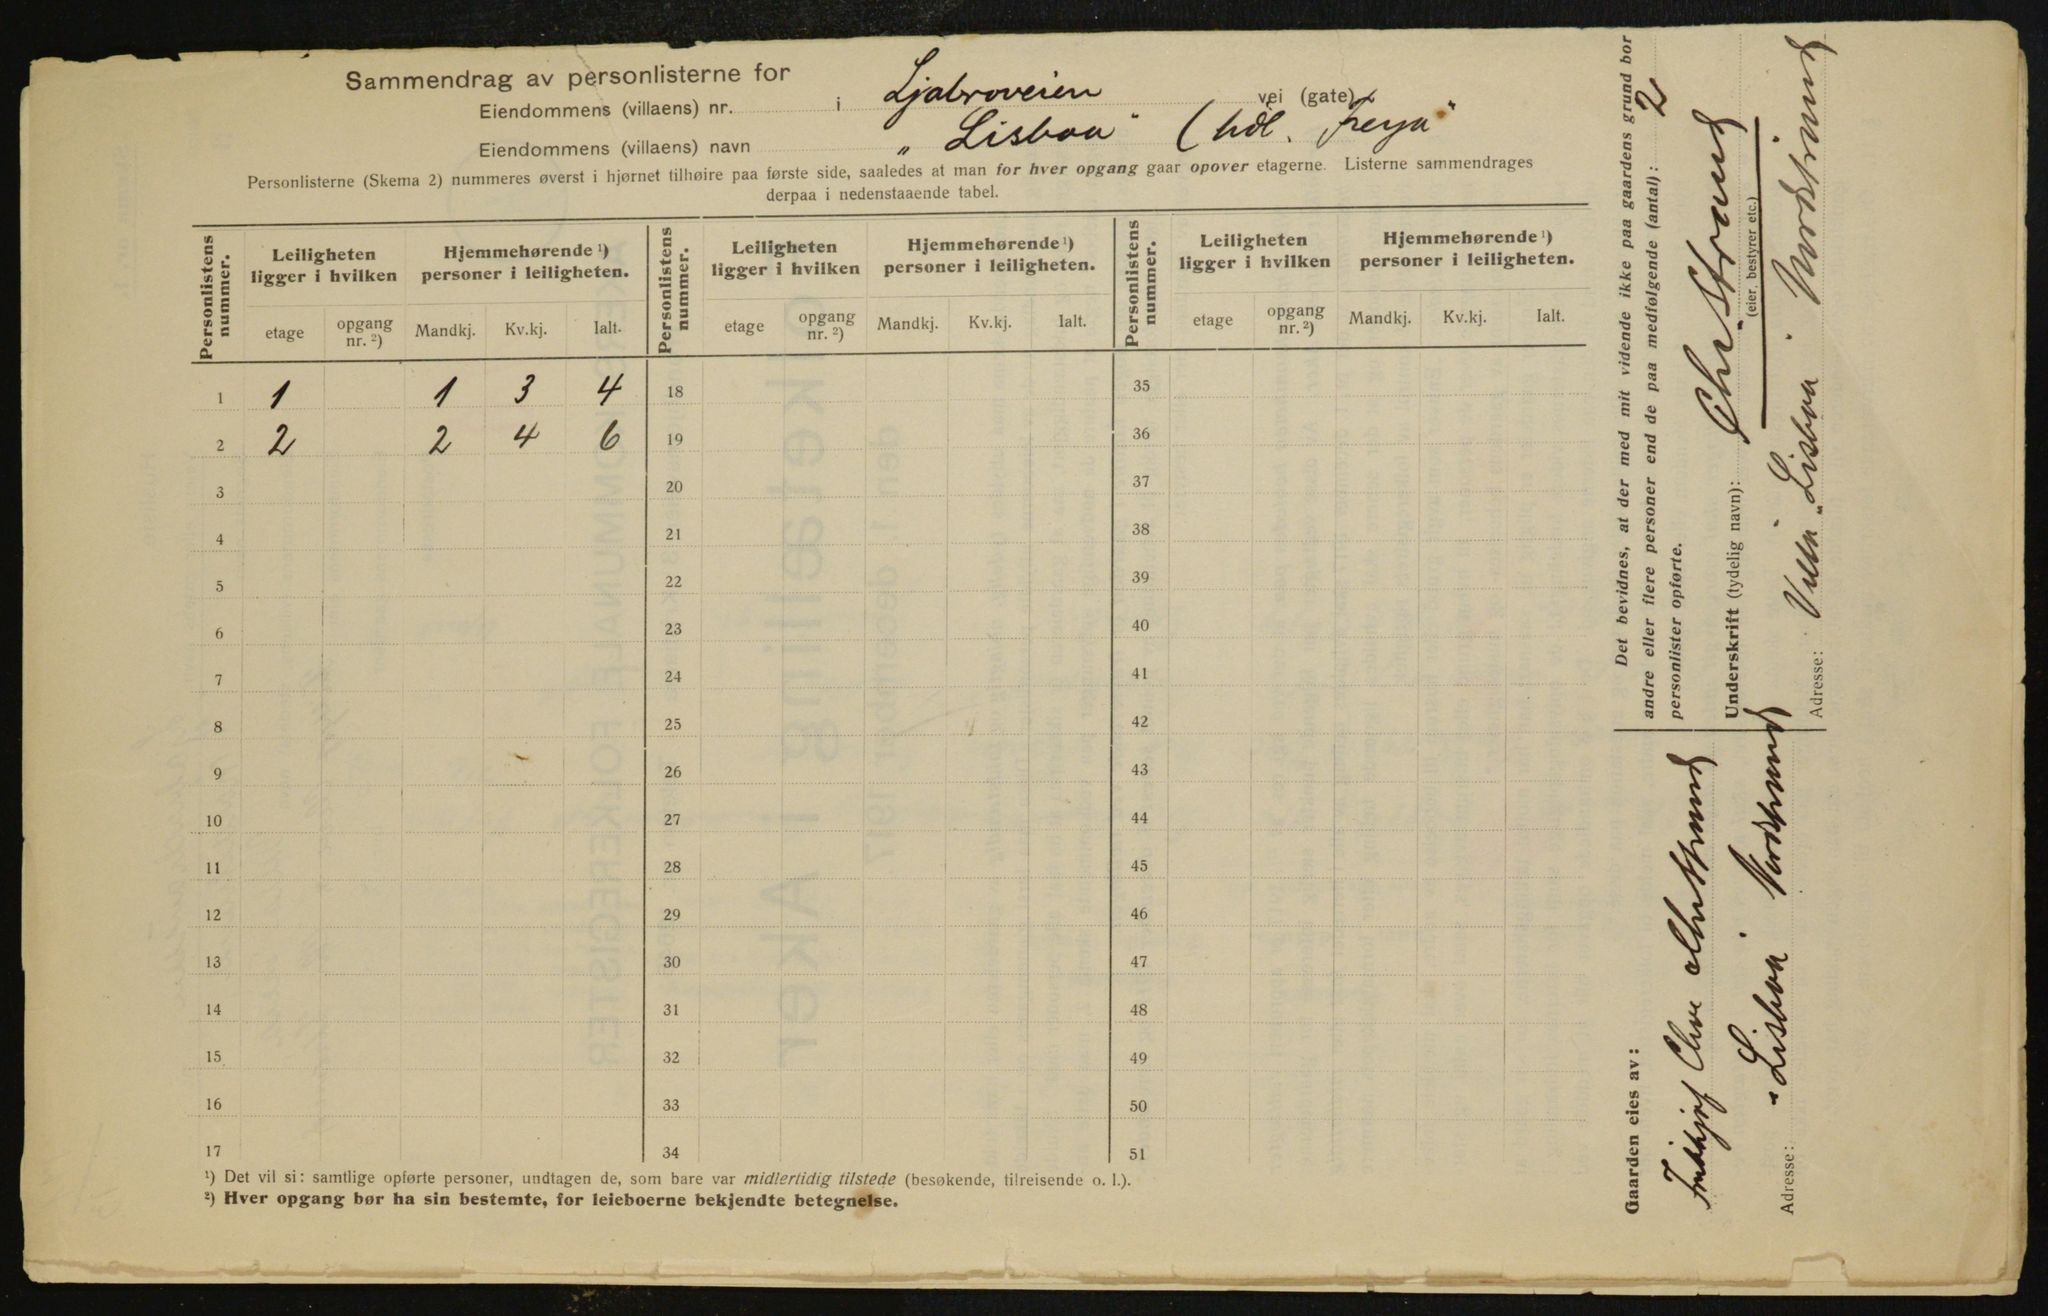 Sammendrag av personlisterne for
Eiendommens (villaens) nr. i Ljabroveien vei (gate)
Eiendommens (villaens) navn „Lisboa" ( hdl. Freya"
Personlisterne (Skema 2) nummeres øverst i hjørnet tilhøire paa første side, saaledes at man for hver opgang gaar opover etagerne. Listerne sammendrages
derpaa i nedenstaaende tabel.
Personlistens nummer. Leiligheten ligger i hvilken Hjemmehørende ¹) personer i leiligheten. Personlistens nummer. Leiligheten ligger i hvilken Hjemmehørende ¹) personer i leiligheten. Personlistens nummer. Leiligheten ligger i hvilken Hjemmehørende ¹) personer i leiligheten.
etage opgang nr. ²) Mandkj. Kv.kj. Ialt. etage opgang nr. ²) Mandkj. Kv.kj. Ialt. etage opgang nr. ²) Mandkj. Kv.kj. Ialt.
1 1 1 3 4 18 35
2 2 2 4 6 19 36
3 20 37
4 21 38
5 22 39
6 23 40
7 24 41
8 25 42
9 26 43
10 27 44
11 28 45
12 29 46
13 30 47
14 31 48
15 32 49
16 33 50
17 34 51
¹) Det vil si: samtlige opførte personer, undtagen de, som bare var midlertidig tilstede (besøkende, tilreisende o. l.).
²) Hver opgang bør ha sin bestemte, for leieboerne bekjendte betegnelse.
Det bevidnes, at der med mit vidende ikke paa gaardens grund bor
andre eller flere personer end de paa medfølgende (antal): 2
personlister opførte.
Underskrift (tydelig navn): Chr. Strand
(eier, bestyrer etc.)
Adresse: Villa „Lisboa" Nordstrand
Gaarden eies av:
Fridthjof Chr
Adresse: „Lisboa" Nordstrand